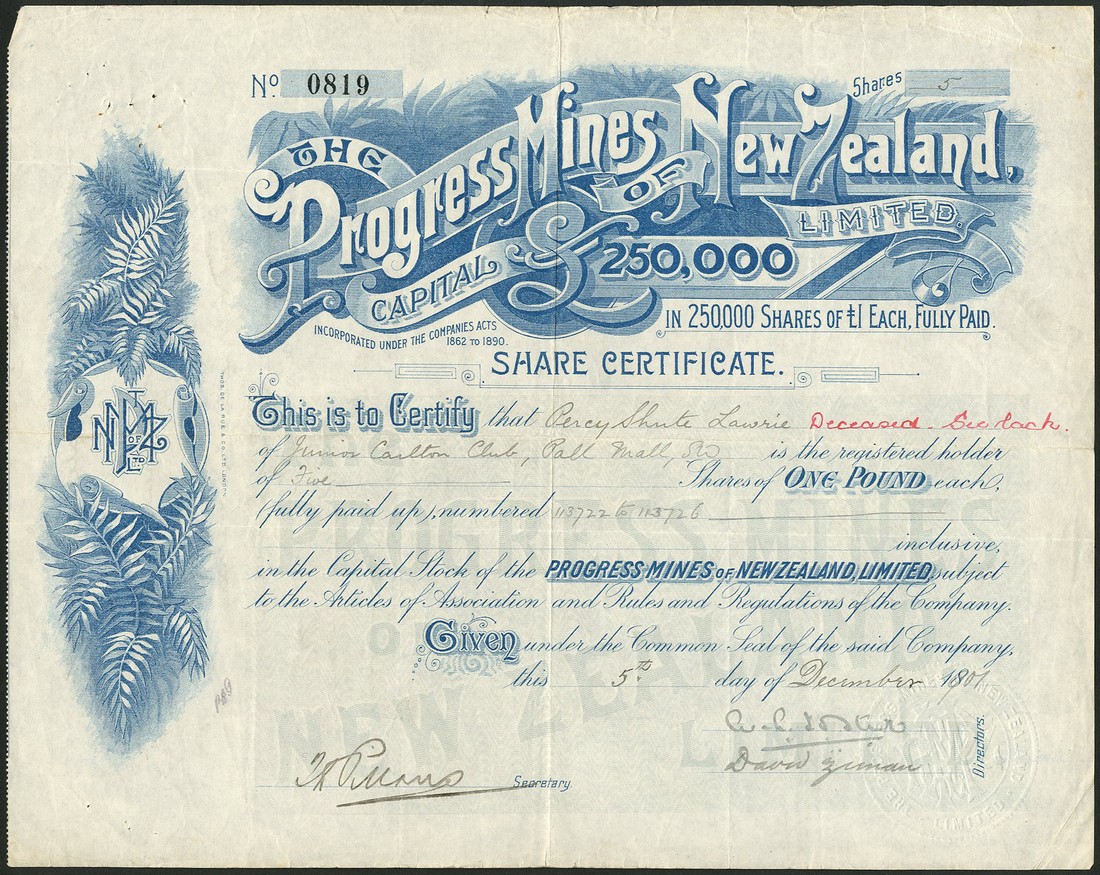 No. 0819
Shares 5
THE
Progress Mines OF New Zealand,
LIMITED.
CAPITAL £250,000
IN 250,000 SHARES OF £1 EACH, FULLY PAID.
INCORPORATED UNDER THE COMPANIES ACTS
1862 TO 1890.
SHARE CERTIFICATE.
This is to Certify that Percy Shute Lawrie Deceased. See back.
of Junior Carlton Club, Pall Mall, SW is the registered holder
of Five Shares of ONE POUND each,
(fully paid up), numbered 113722 to 113726
inclusive,
in the Capital Stock of the PROGRESS MINES OF NEW ZEALAND, LIMITED, subject
to the Articles of Association and Rules and Regulations of the Company.
Given under the Common Seal of the said Company,
this 5th day of December 1801
David Ziman
Directors.
Secretary.
THOS. DE LA RUE & CO. LTD. LONDON
PROGRESS MINES
OF
NEW ZEALAND
LIMITED